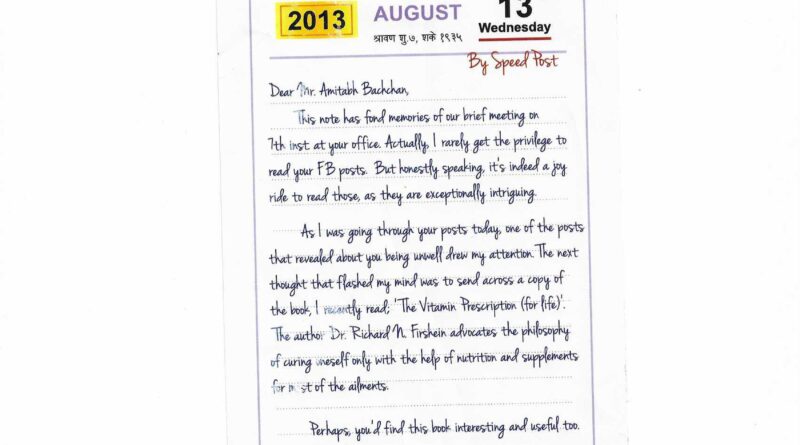 2013 AUGUST 13
श्रावण शु.७, शके १९३५ Wednesday
By Speed Post
Dear Mr. Amitabh Bachchan,
This note has fond memories of our brief meeting on
7th inst at your office. Actually, I rarely get the privilege to
read your FB posts. But honestly speaking, it's indeed a joy
ride to read those, as they are exceptionally intriguing.
As I was going through your posts today, one of the posts
that revealed about you being unwell drew my attention. The next
thought that flashed my mind was to send across a copy of
the book, I recently read; 'The Vitamin Prescription (for life)'.
The author Dr. Richard N. Firshein advocates the philosophy
of curing oneself only with the help of nutrition and supplements
for most of the ailments.
Perhaps, you'd find this book interesting and useful too.